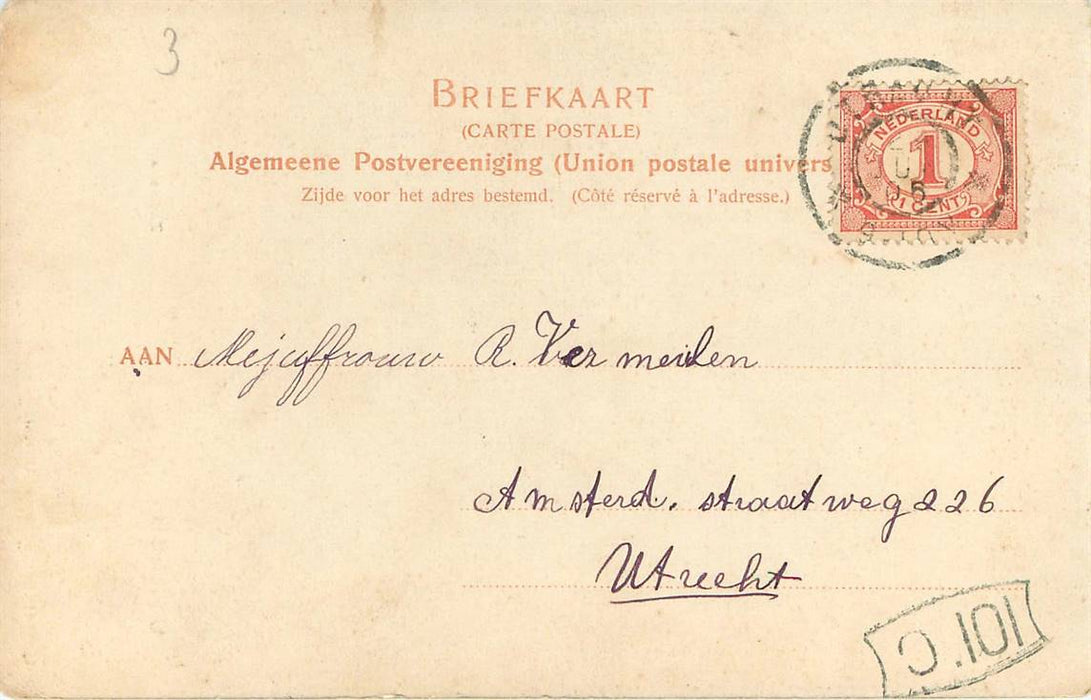 3
BRIEFKAART
(CARTE POSTALE)
Algemeene Postvereeniging (Union postale univers
Zijde voor het adres bestemd. (Côté réservé à l'adresse.)
NEDERLAND
1
1 CENT
05
AAN Mejuffrouw R. Vermeulen
Amsterd. straatweg 226
Utrecht
C.101